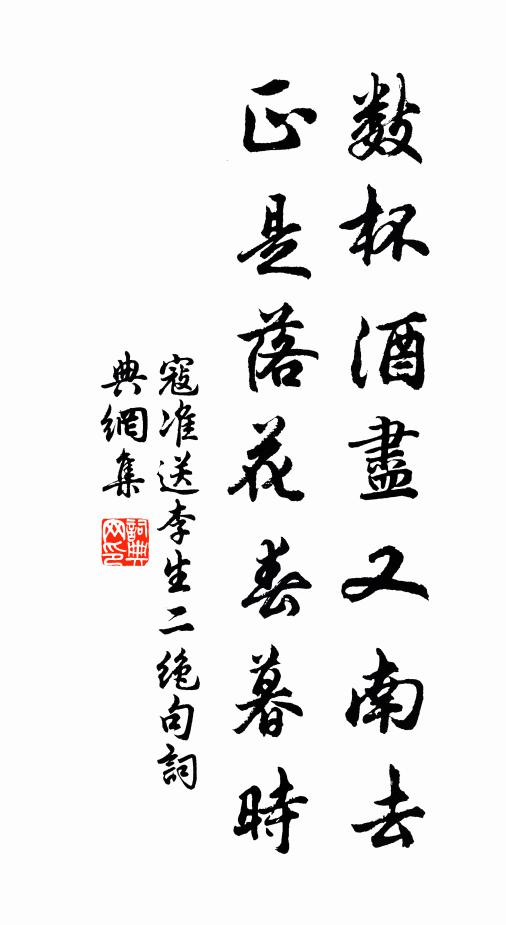 数杯酒盡又南去
正是落花春暮時
寇准送李生二绝句詞
典網集
詞典网印